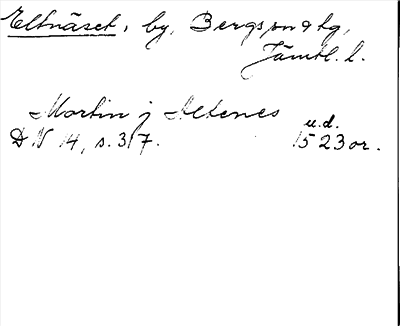 Eltnäset, by, Bergs sn o tg,
Jämtl. l.
Mortin j Altenes
u.d.
DN 14, s. 317. 1523 or.